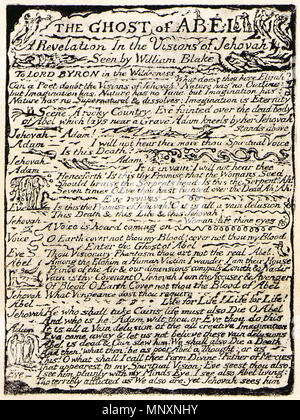 THE GHOST of ABEL
A Revelation In the Visions of Jehovah
Seen by William Blake
To LORD BYRON in the Wilderness
What doest thou here Elijah
Can a Poet doubt the Visions of Jehovah? Nature has no Outline:
but Imagination has. Nature has no Tune: but Imagination has!
Nature has no Supernatural & dissolves: Imagination is Eternity
Scene. A rocky Country. Eve fainted over the dead body
of Abel which lays near a Grave. Adam kneels by her Jehovah
stands above
Jehovah Adam!
Adam I will not hear thee more thou Spiritual Voice
Is this Death?
Jehovah Adam!
Adam It is in vain: I will not hear thee
Henceforth! Is this thy Promise that the Womans Seed
Should bruise the Serpents head: Is this the Serpent? Ah!
Seven times, O Eve thou hast fainted over the Dead Ah! Ah!
Eve revives
Eve Is this the Promise of Jehovah! O it is all a vain delusion
This Death & this Life & this Jehovah!
Jehovah Woman! lift thine eyes
A Voice is heard coming on
Voice O Earth cover not thou my Blood! cover not thou my Blood
Enter the Ghost of Abel
Eve Thou Visionary Phantasm thou art not the real Abel.
Abel Among the Elohim a Human Victim I wander I am their House
Prince of the Air & our dimensions compass Zenith & Nadir
Vain is thy Covenant O Jehovah I am the Accuser & Avenger
Of Blood O Earth Cover not thou the Blood of Abel
Jehovah What Vengeance dost thou require
Abel Life for Life! Life for Life!
Jehovah He who shall take Cains life must also Die O Abel
And who is he? Adam wilt thou, or Eve thou do this
Adam It is all a Vain delusion of the all creative Imagination
Eve come away & let us not believe these vain delusions
Abel is dead & Cain slew him! We shall also Die a Death
And then! what then? be as poor Abel a Thought: or as
This! O what shall I call thee Form Divine! Father of Mercies
That appearest to my Spiritual Vision: Eve seest thou also.
Eve I see him plainly with my Minds Eye. I see also Abel living:
Tho terribly afflicted as We also are. yet Jehovah sees him
alamy